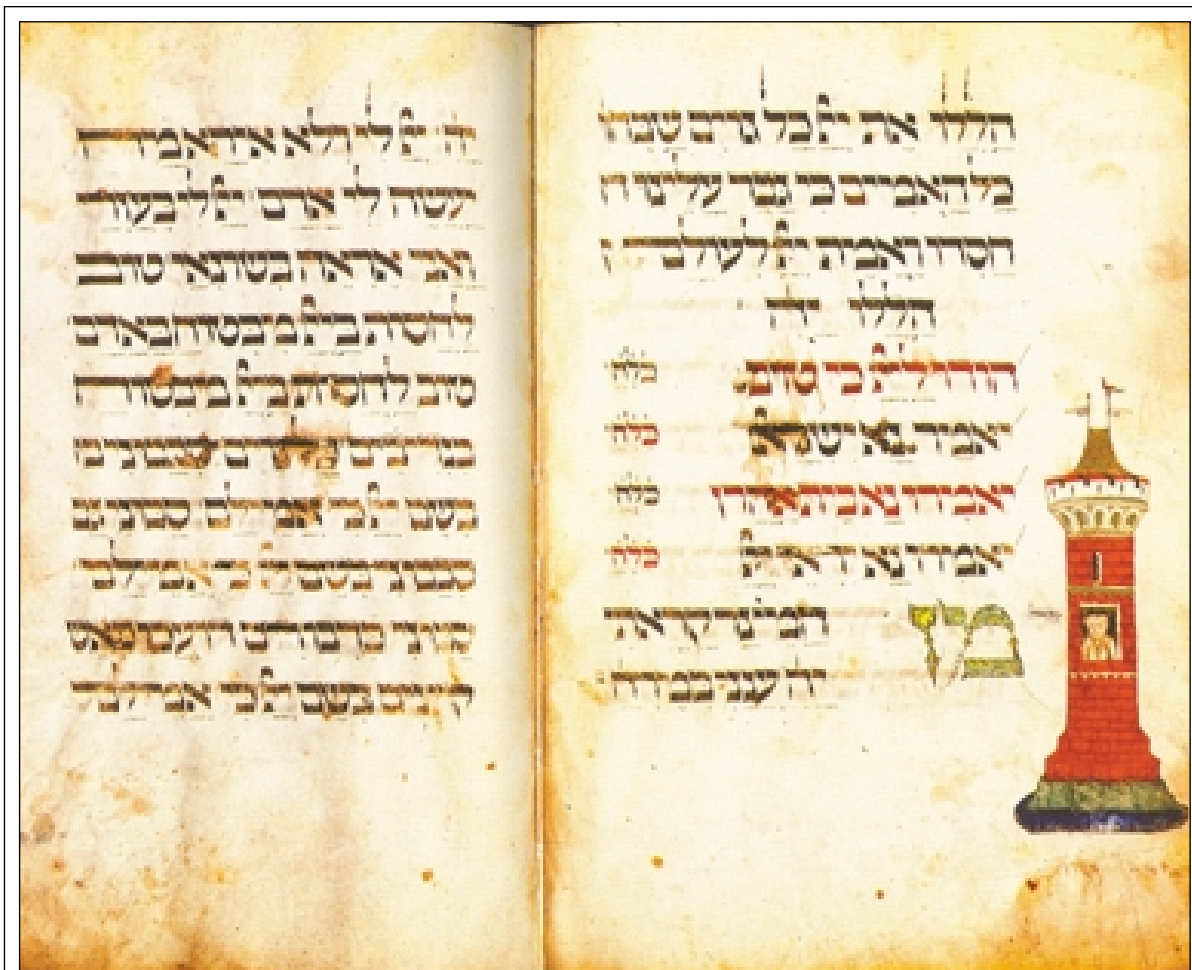 הללו את יי כל גוים שבחו
כל האמים כי גבר עלינו ח
חסדו ואמת יי לעולם
הללו יה
הודו ליי כי טוב כלה
יאמר נא ישרא כלה
יאמרו נא בית אהרן כלה
יאמרו נא יראי יי כלה
מן המיצר קראתי
יה ענני במרח
יי לי ולא אירא מה
יעשה לי אדם יי לי בעוזרי
ואני אראה בשונאי טוב
לחסות ביי מבטוח באדם
טוב לחסות ביי מבטוח
בנדיבים כל גוים סבבוני
בשם יי כי אמילם סבוני גם
סבבוני בשם יי כי אמילם
סבוני כדבורים דועכו כאש
קוצים בשם יי כי אמילם